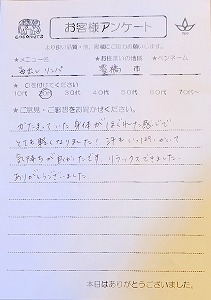 お客様アンケート
より良い品質・他、御協力ご協力お願いします。
★メニュー名 ★お住まいの地域 ★ペンネーム
リンパ 豊橋 市
★ ○を付けてください
10代 20代 30代 40代 50代 60代 70代〜
★ご意見・ご感想をお聞かせください。
かたまっていた身体がほぐれた感じで
とても軽くなりました！汗もいっぱいかいて
気持ちが良かったです。リラックスできました。
ありがとうございました。
本日はありがとうございました。